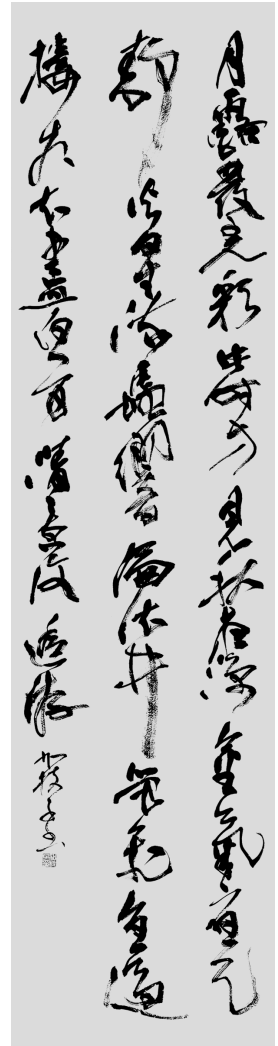 月露發光彩此時方見秋夜涼金氣應天
靜火星流蛩響偏依井螢飛直過
樓相知盡白首清景復追遊